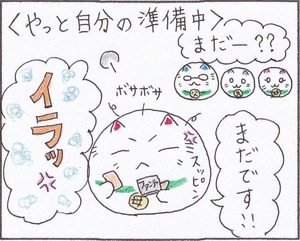 <やっと自分の準備中>
まだー??
ボサボサ
イラッ
スッピン
ファンデ
母
まだです!!